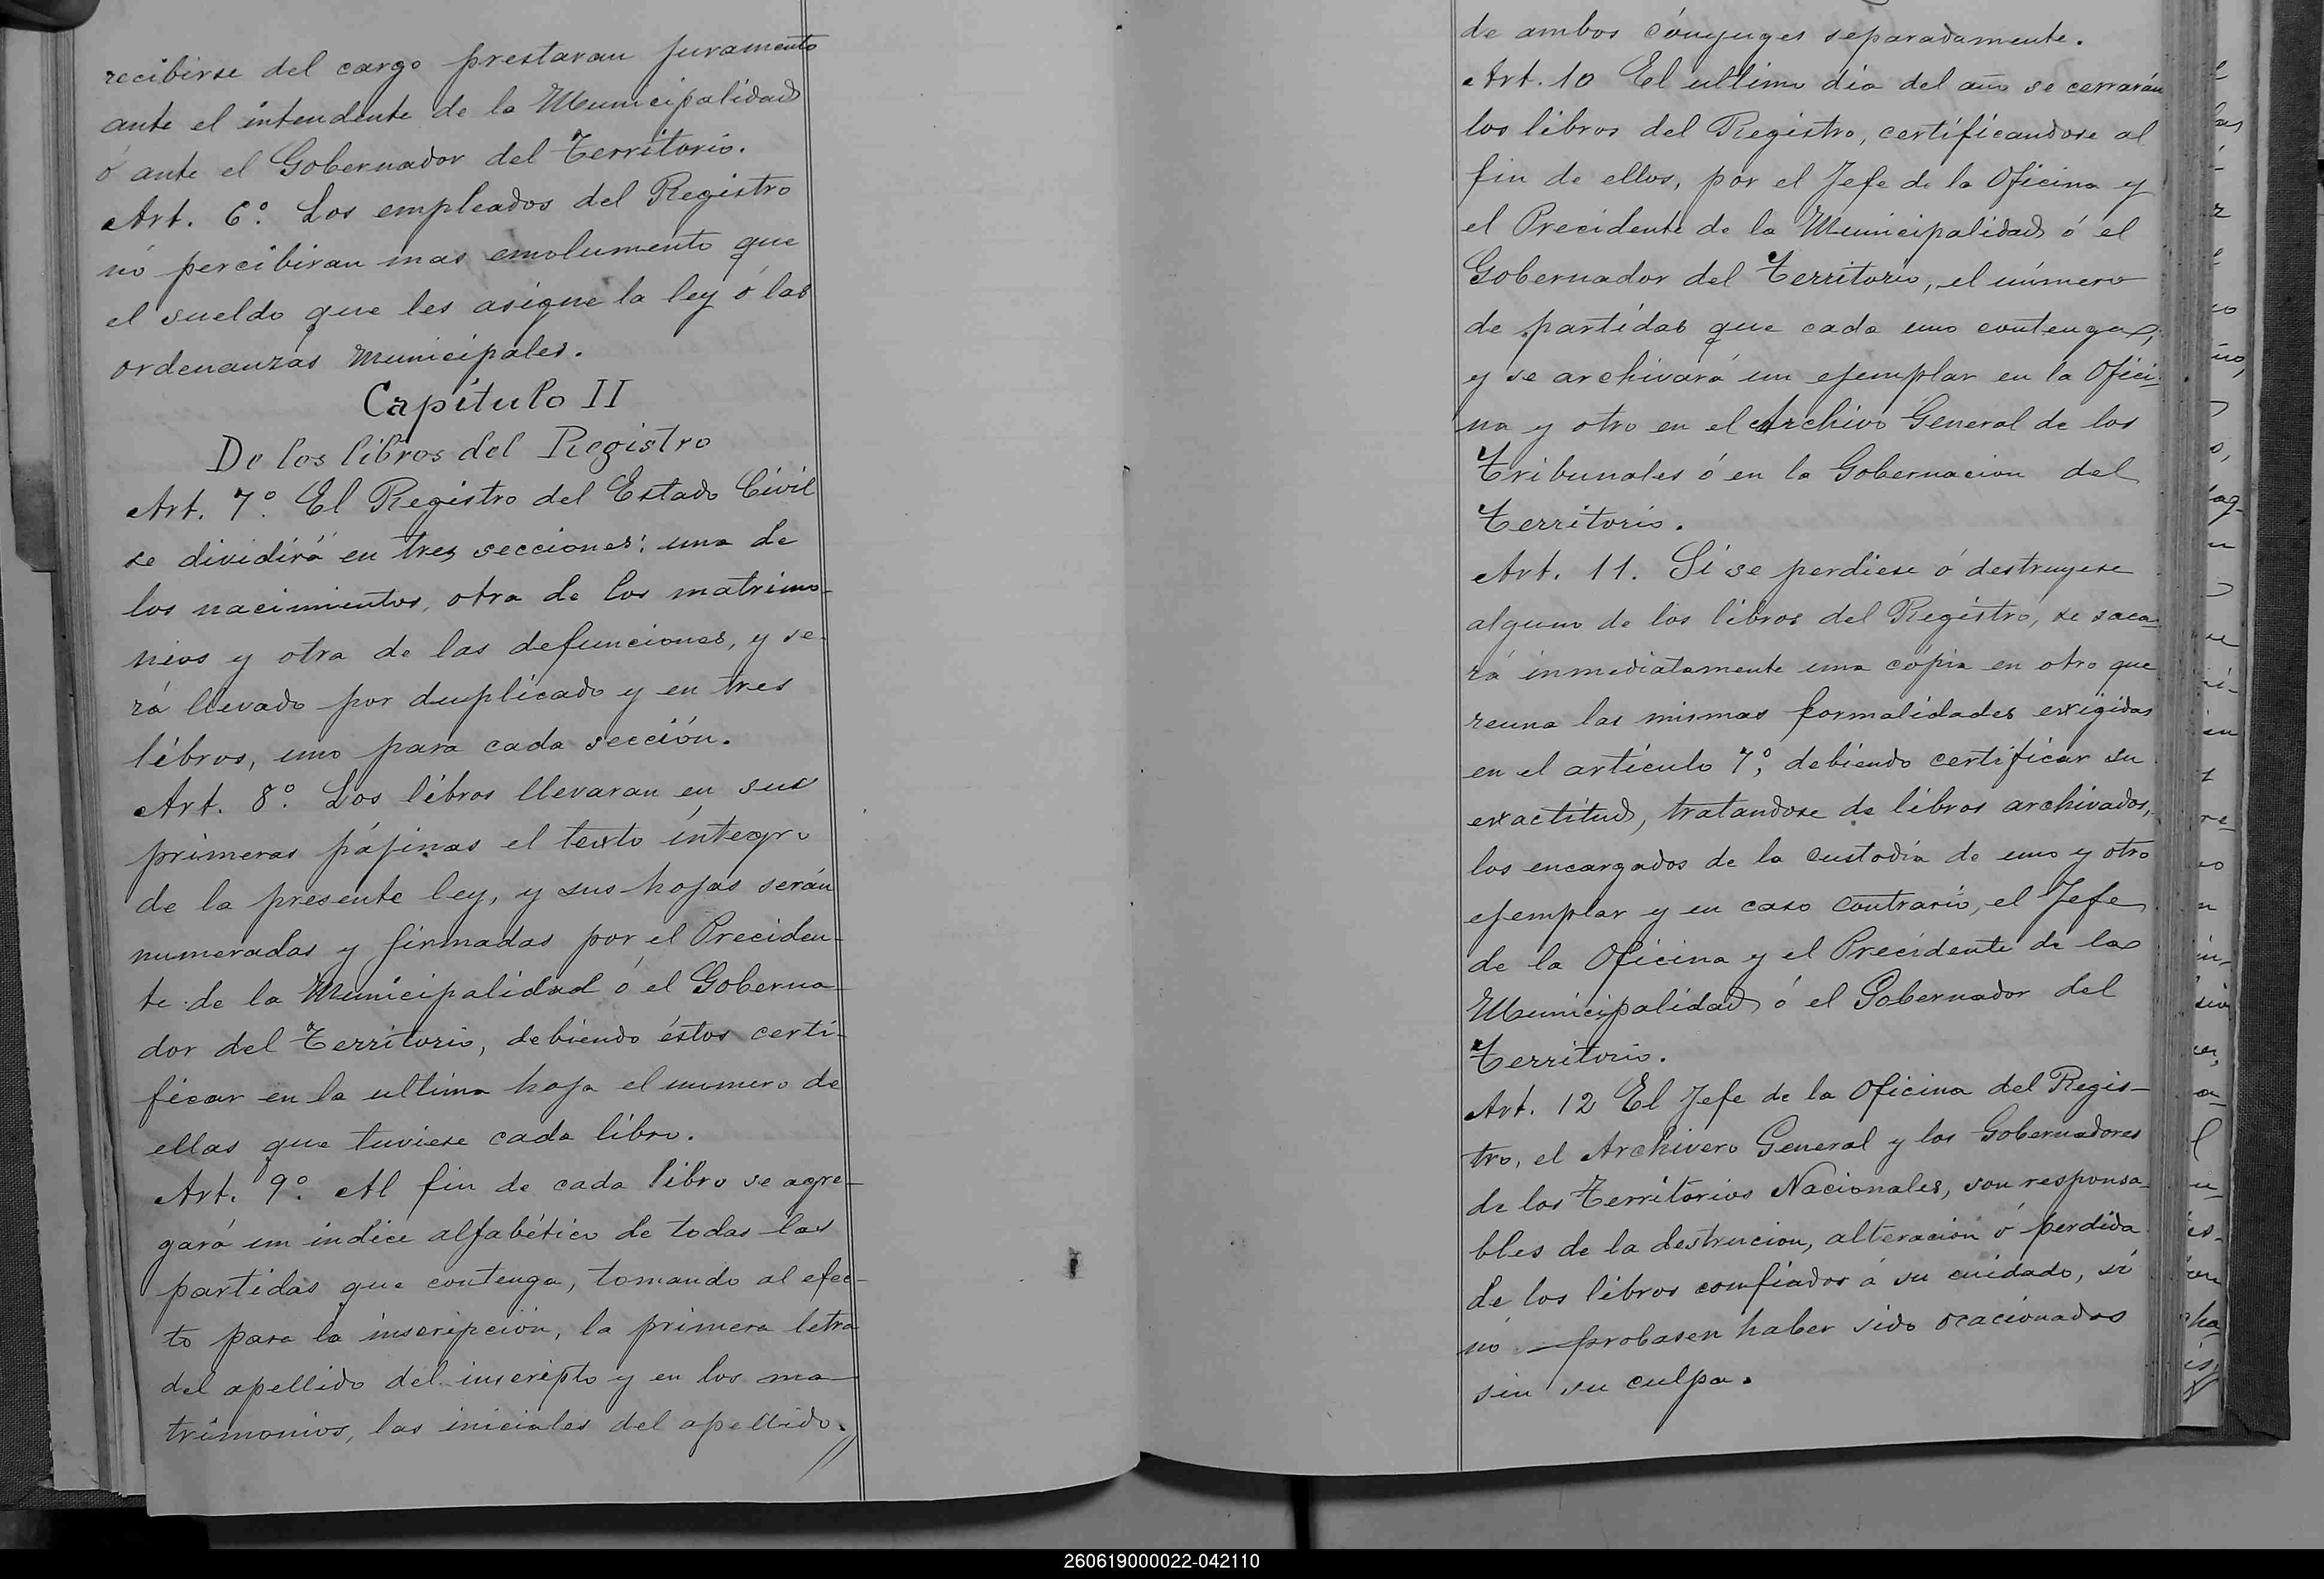 recibirse del cargo prestaran juramento
ante el intendente de la Municipalidad
ó ante el Gobernador del Territorio.
Art. 6º. Los empleados del Registro
nó percibiran mas emolumento que
el sueldo que les asigne la ley ó las
ordenanzas Municipales.
Capítulo II
De los libros del Registro
Art. 7º. El Registro del Estado Civil
se dividirá en tres secciones: una de
los nacimientos, otra de los matrimo-
nios y otra de las defunciones, y se-
rá llevado por duplicado y en tres
libros, uno para cada sección.
Art. 8º. Los libros llevaran en sus
primeras pájinas el texto íntegro
de la presente ley, y sus hojas serán
numeradas y firmadas por el Preciden-
te de la Municipalidad ó el Goberna-
dor del Territorio, debiendo éstos certi-
ficar en la ultima hoja el numero de
ellas que tuviese cada libro.
Art. 9º. Al fin de cada libro se agre-
gará un indice alfabético de todas las
partidas que contenga, tomando al efec-
to para la inscripción, la primera letra
del apellido del inscripto y en los ma-
trimonios, las iniciales del apellido.
de ambos cónyuges separadamente.
Art. 10 El ultimo dia del año se cerrarán
los libros del Registro, certificandose al
fin de ellos, por el Jefe de la Oficina y
el Precidente de la Municipalidad ó el
Gobernador del Territorio, el número
de partidas que cada uno contenga,
y se archivará un ejemplar en la Ofici-
na y otro en el Archivo General de los
Tribunales ó en la Gobernacion del
Territorio.
Art. 11. Si se perdiese ó destruyese
alguno de los libros del Registro, se saca-
rá inmediatamente una cópia en otro que
reuna las mismas formalidades exigidas
en el artículo 7º, debiendo certificar su
exactitud, tratandose de libros archivados,
los encargados de la custodia de uno y otro
ejemplar y en caso contrario, el Jefe
de la Oficina y el Precidente de la
Municipalidad ó el Gobernador del
Territorio.
Art. 12 El Jefe de la Oficina del Regis-
tro, el Archivero General y los Gobernadores
de los Territorios Nacionales, son responsa-
bles de la destrucion, alteración ó perdida
de los libros confiados á su cuidado, si
nó probasen haber sido ocacionados
sin su culpa.
260619000022-042110